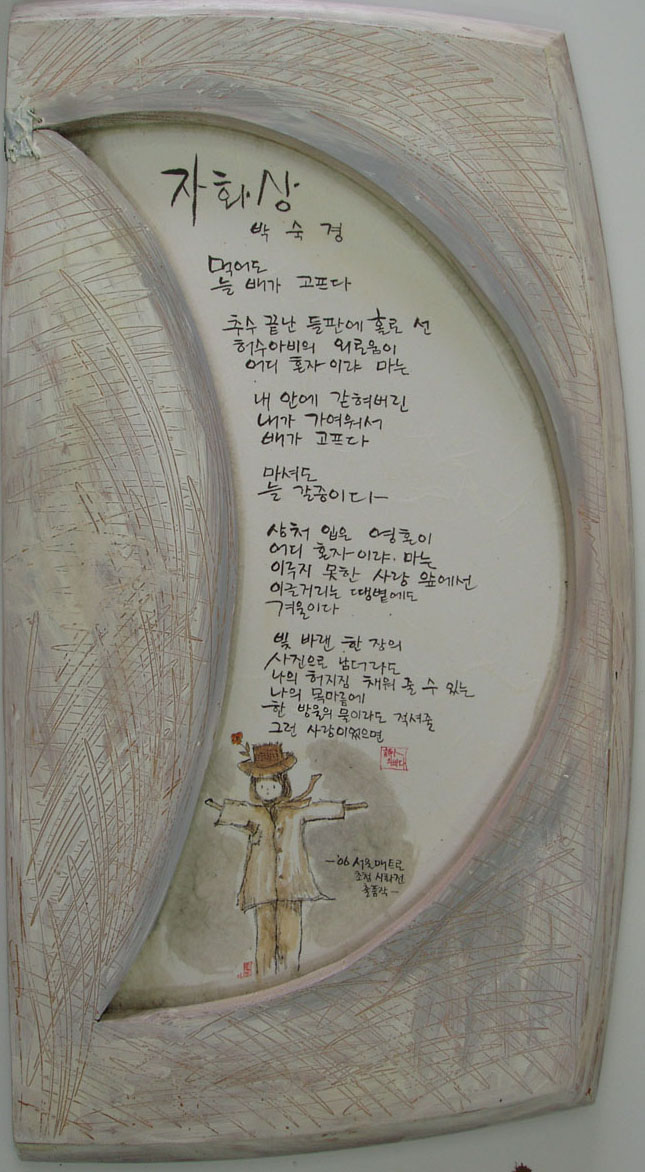 자화상
박숙경
먹어도
늘 배가 고프다
추수 끝난 들판에 홀로 선
허수아비의 외로움이
어디 혼자이랴 마는
내 안에 갇혀버린
내가 가여워서
배가 고프다
마셔도
늘 갈증이다-
상처 입은 영혼이
어디 혼자이랴. 마는
이루지 못한 사랑 앞에선
이글거리는 땡볕에도
겨울이다
빛 바랜 한 장의
사진으로 남더라도
나의 허기짐 채워 줄 수 있는
나의 목마름에
한 방울의 물이라도 적셔줄
그런 사랑이었으면
-'06 서울메트로
초청 시화전
출품작-